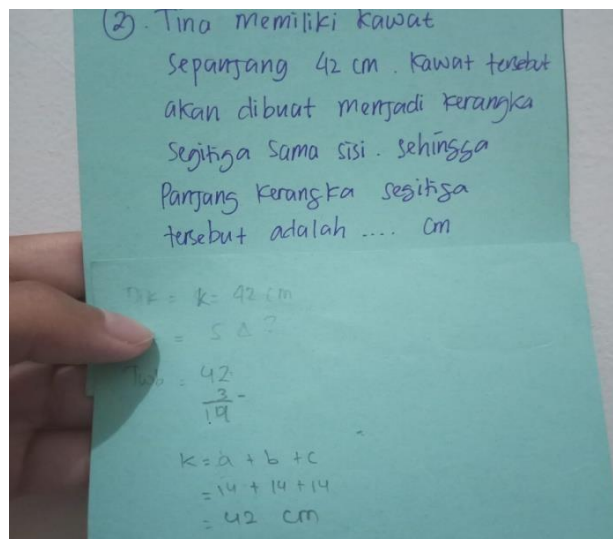 2. Tina memiliki kawat
sepanjang 42 cm. Kawat tersebut
akan dibuat menjadi kerangka
segitiga sama sisi. sehingga
Panjang kerangka segitiga
tersebut adalah .... cm
Dik = k = 42 cm
= S Δ ?
Jwb = 42
3 -
19
K = a + b + c
= 14 + 14 + 14
= 42 cm